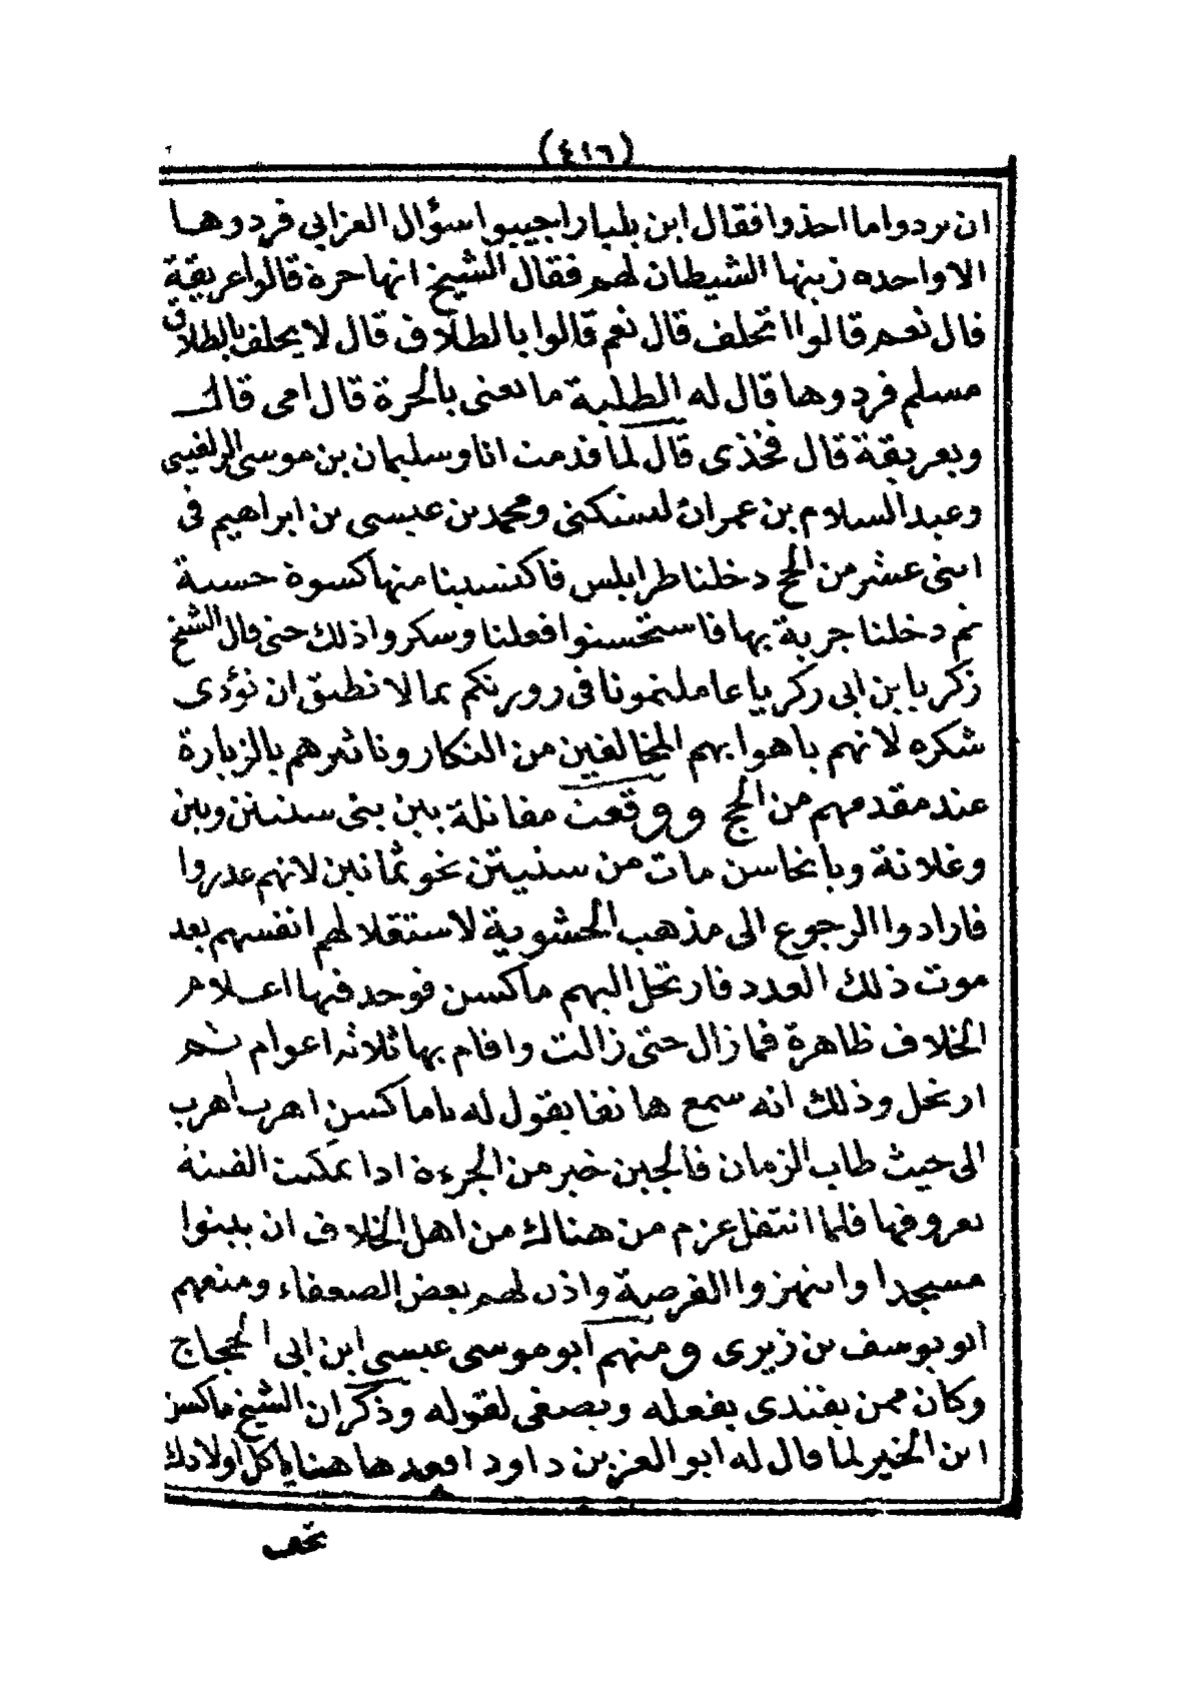 (٤١٦)
ان يردوا ما اخذوا فقال ابن يليار اجيبوا سؤال العزابي فردوها
الا واحده زينها الشيطان لهم فقال الشيخ انها حرة قالوا عريقية
قال نعم قالوا اتحلف قال نعم قالوا بالطلاق قال لا يحلف بالطلاق
مسلم فردوها قال له الطلبة ما يعنى بالحرة قال امى قالت
وبعريقة قال فخذى قال لما قدمت انا وسليمان بن موسى الزلفينى
وعبد السلام بن عمران ومحمد بن عيسى بن ابراهيم فى
اثنى عشر من الحج دخلنا طرابلس فاكتسينا منها كسوة حسنة
ثم دخلنا جربة بها فاستحسنوا فعلنا وشكروا ذلك حتى قال الشيخ
زكريا بن ابى زكريا عاملتمونا فى زورتكم بما لا نطيق ان نؤدى
شكره لانهم باهوا بهم المخالفين من النكار وناثرهم بالزيارة
عند مقدمهم من الحج ووقعت مقاتلة بين بنى سنتين وبين
وغلانة وبا نحاسن مات من سنيتن نحو ثمانين لانهم غدروا
فارادوا الرجوع الى مذهب الحشوية لاستقلالهم انفسهم بعد
موت ذلك العدد فارتحل اليهم ماكسن فوجد فيها اعلام
الخلاف ظاهرة فما زال حتى زالت واقام بها ثلاثه اعوام ثم
ارتحل وذلك انه سمع هاتفا يقول له ياماكسن اهرب اهرب
الى حيث طاب الزمان فالجبن خير من الجرءة اذا تمكنت الفتنة
بعروقها فلما انتقل عزم من هناك من اهل الخلاف ان يبنوا
مسجدا وانتهزوا الفرصة واذن لهم بعض الضعفاء ومنعهم
ابو يوسف بن زيرى ومنهم ابو موسى عيسى ابن ابى الحجاج
وكان ممن يقتدى بفعله ويصغى لقوله وذكر ان الشيخ ماكسن
ابن الخير لما قال له ابو العز بن داود اقعد هاهنا ياكل اولادك
تحف